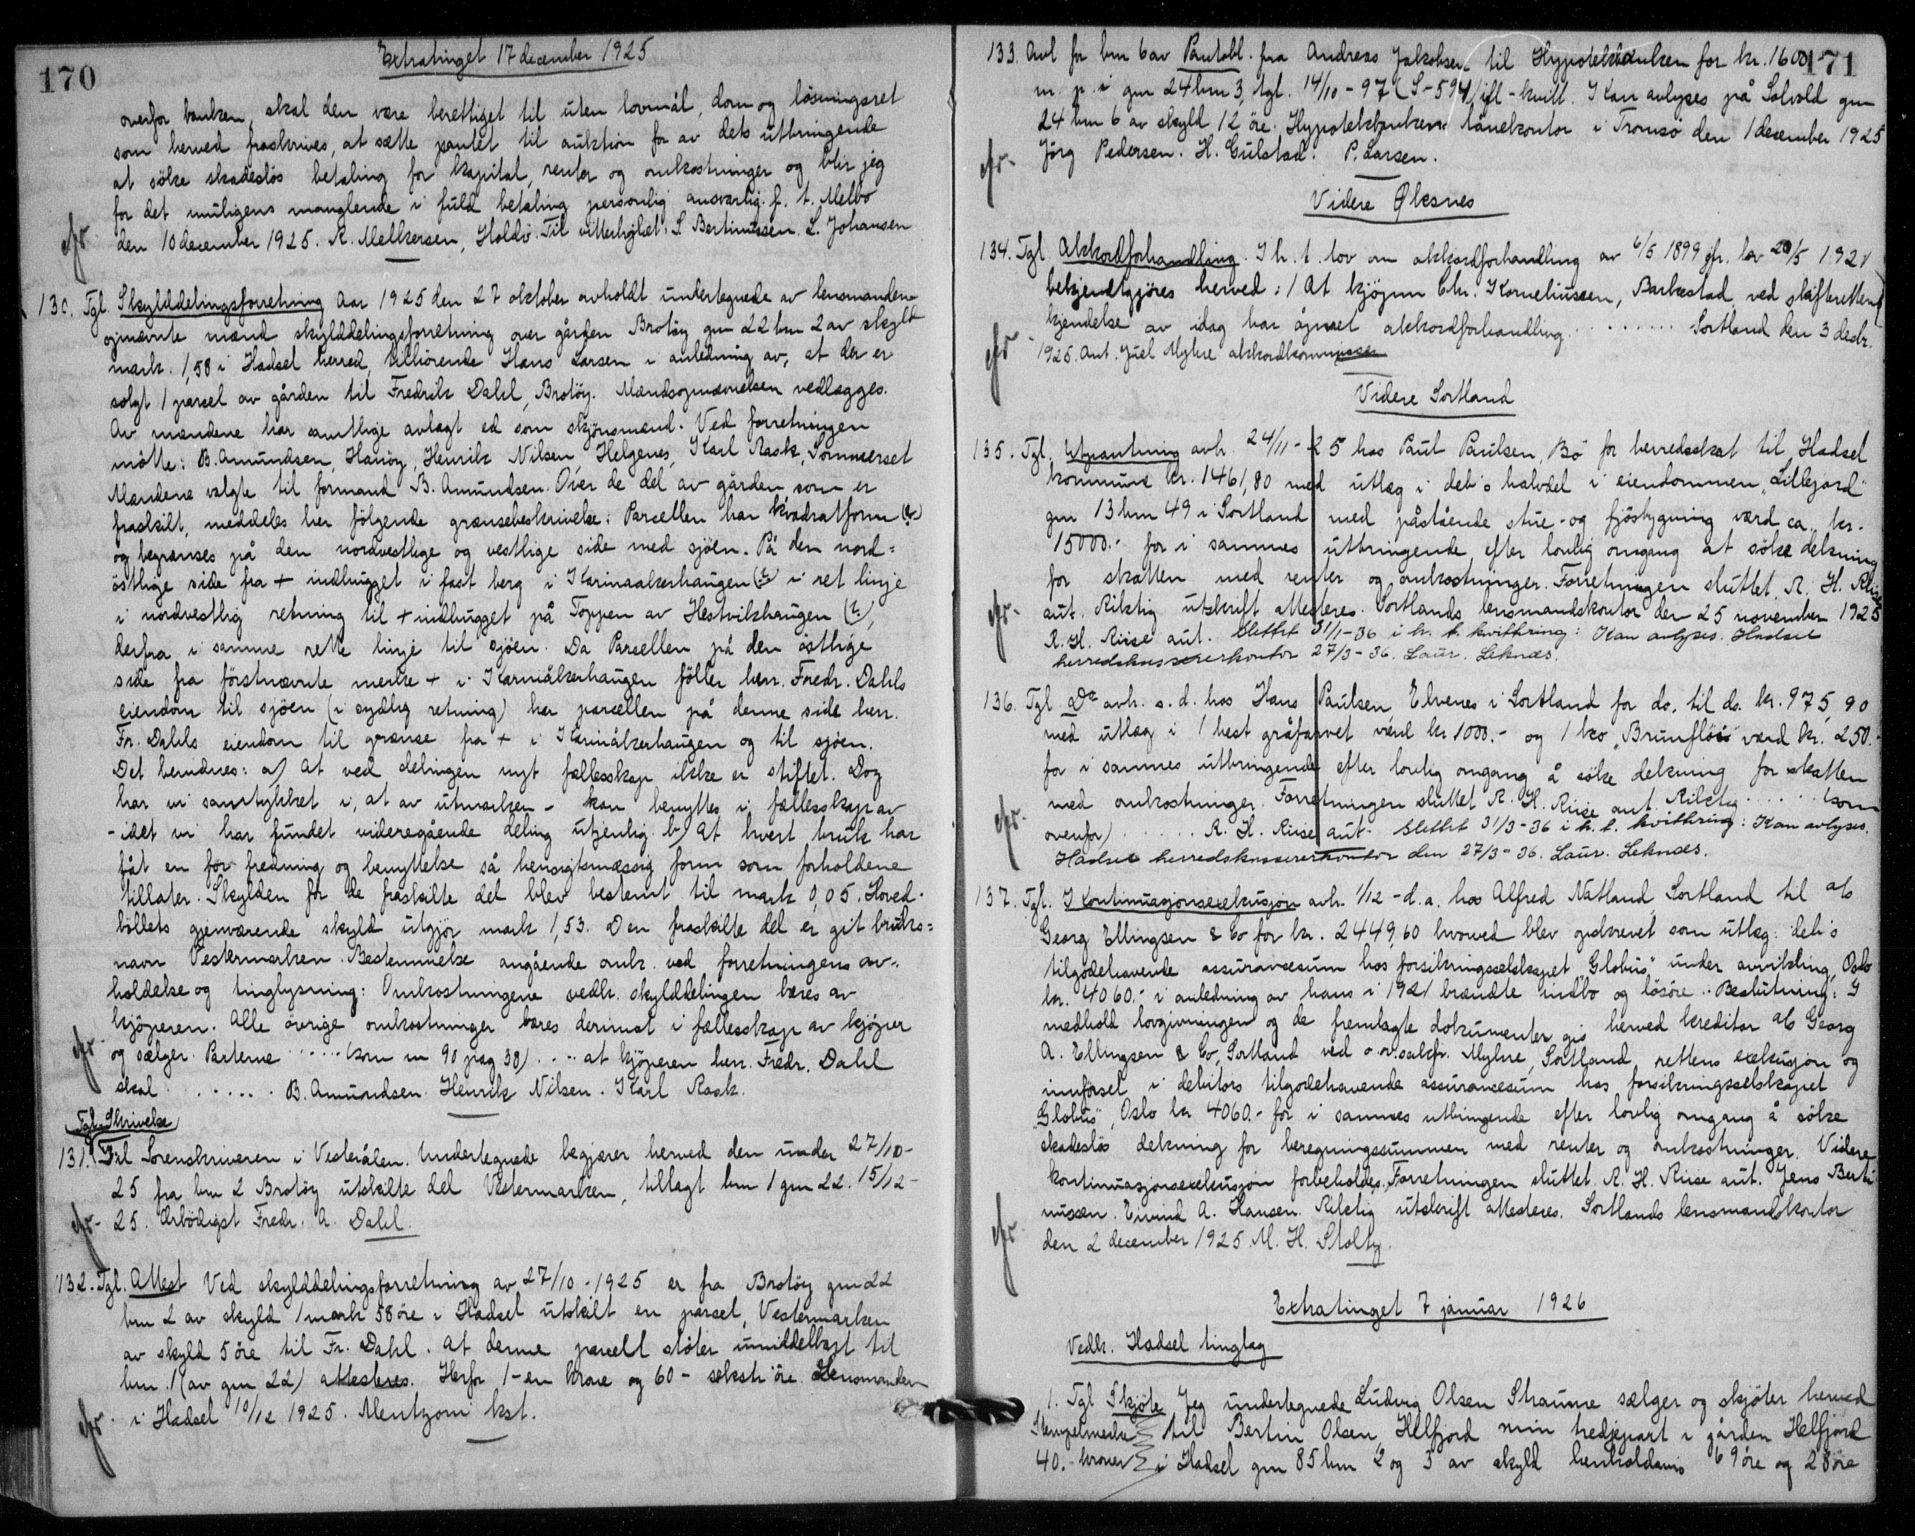 170
Extratinget 17 december 1925
overfor banken, skal den være berettiget til uten lovmål, dom og løsningsret
som herved fraskrives, at sætte pantet til auktion for av dets utbringende
at söke skadeslös betaling for kapital, renter og omkostninger og blir jeg
for det muligens manglende i fuld betaling personlig ansvarlig. p. t. Melbo
den 10 december 1925. R. Melkersen, Holdö. Til vitterlighet: S Bertinussen. L. Johansen
130. Tgl. Skylddelingsforretning Aar 1925 den 27 oktober avholdt undertegnede av lensmanden
opnævnte mænd skylddelingsforretning over gården Brotöy gnr 22 brn 2 av skyld
mark. 1,58 i Hadsel herred, tilhörende Hans Larsen i anledning av, at der er
solgt 1 parsel av gården til Fredrik Dahl, Brotöy. Mændsopnævnelsen vedlægges.
Av mændene har samtlige avlagt ed som skjönsmænd. Ved forretningen
mötte: B. Amundsen, Hanöy, Henrik Nilsen, Helgenes, Karl Rask, Sommerset
Mændene valgte til formand B. Amundsen. Over de del av gården, som er
fraskilt, meddeles her fölgende grænsebeskrivelse: Parcellen har kvadratform
og begrænses på den nordvestlige og vestlige side med sjöen. På den nord=
östlige side fra + indhugget i fast berg i Karinaakerhaugen i ret linje
i nordvestlig retning til + indhugget på Toppen av Hestvikhaugen
derfra i samme rette linje til sjöen. Da Parcellen på den östlige
side fra förstnævnte merke + i Karinåkerhaugen föller herr. Fredr. Dahls
eiendom til sjöen (i sydlig retning) har parcellen på denne side herr.
Fr. Dahls eiendom til grænse fra + i Karinåkerhaugen og til sjöen.
Det bemerkes: a) At ved delingen nyt fællesskap ikke er stiftet. Dog
har vi samtykket i, at av utmarken - kan benyttes i fællesskap av
- idet vi har fundet videregående deling utjenlig. b) At hvert bruk har
fåt en for fredning og benyttelse så hensigtsmæssig form som forholdene
tillater. Skylden for de fraskilte del blev bestemt til mark 0,05. Hoved-
böllets gjenværende skyld utgjör mark 1,53. Den fraskilte del er git bruks=
navn Vestermarken. Bestemmelse angående omk. ved forretningens av-
holdelse og tinglysning: Omkostningene vedkr. skylddelingen bæres av
kjöperen. Alle övrige omkostninger bæres derimot i fællesskap av kjöper
og sælger. Parterne ..... (som nr 90 pag 38) .... at kjöperen herr. Fredr. Dahl
skal ...... B. Amundsen. Henrik Nilsen. Karl Rask.
Tgl. Skrivelse
131. Til Sorenskriveren i Vesterålen. Undertegnede begjærer herved den under 27/10-
25 fra brn 2 Brotöy utskilte del Vestermarken, tillagt brn 1 gnr 22. 15/12-
25. Ærbödigst Fredr. A. Dahl.
132. Tgl. Attest Ved skylddelingsforretning av 27/10-1925 er fra Brotöy gnr 22
brn 2 av skyld 1 mark 58 öre i Hadsel utskilt en parsel, Vestermarken
av skyld 5 öre til Fr. Dahl. At denne parcell stöter umiddelbart til
brn. 1 (av gnr 22) attesteres. Herfor 1-en krone og 60- sekstr öre. Lensmanden
i Hadsel 10/12 1925. Mentzoni kst.
171
133. Avl for brn 6 av Pantobl. fra Andreas Jakobsen til Hypotekbanken for kr. 1600.-
m. p. i gnr 24 brn 3, tgl. 14/10-97 (S-594) ifl-kvitt. Kan avlyses på Solvold gnr
24 brn 6 av skyld 12 öre. Hypotekbankens lånekontor i Tromsö den 1 december 1925
Jörg Pedersen. H. Gulstad. P. Larsen.
Videre Øksnes
134. Tgl Akkordforhandling. I h. t. lov om akkordforhandling av 6/5 1899 jfr. lov 20/5 1921
bekjendtgjöres herved: / At kjöpm Chr. Korneliussen, Barkestad, ved skifterettens
kjendelse av idag har åpnet akkordforhandling. ........ Sortland den 3 desbr.
1925. Aut. Juel Myhre akkordkommissær
Videre Sortland
135. Tgl. Utpantning avh. 24/11-25 hos Paul Paulsen, Bö for herredsskat til Hadsel
kommune kr. 1461,80 med utlæg i deb's halvdel i eiendommen „Lillejord"
gnr 13 brn 49 i Sortland med påstående stue- og fjösbygning værd ca. kr.
15000.- for i sammes utbringende efter lovlig omgang at söke dekning
for skatten med renter og omkostninger. Forretningen sluttet. R. H. Riise
aut. Riktig utskrift attesteres. Sortlands lensmandskontor den 25 november 1925
R. H. Riise aut. Slettet 31/1-36 i h. t. kvittering: Kan avlyses. Hadsel
herredskassererkontor 27/3-36. Laur. Leknes.
136. Tgl Do avh. s. d. hos Hans Paulsen, Elvenes i Sortland for do. til do. kr. 975,90
med utlæg i 1 hest gråfarvet værd kr 1000.- og 1 ko „Brunflöi" værd kr. 250.-
for i sammes utbringende efter lovlig omgang å söke dekning for skatten
med omkostninger. Forretningen sluttet R. H. Riise aut. Riktig ..... (som
ovenfor) ...... R. H. Riise aut. Slettet 31/3-36 i h. t. kvittering: Kan avlyses.
Hadsel herredskassererkontor den 27/3-36. Laur. Leknes.
137. Tgl. Kontinuasjonsexekusjon avh. 1/12-d.a. hos Alfred Natland, Sortland til a/s
Georg Ellingsen & Co for kr. 2449,60 hvorved blev opskrevet som utlæg: deb's
tilgodehavende assurancesum hos forsikringsselskapet „Globus" under avvikling, Oslo
kr. 4060.- i anledning av hans i 1921 brændte indbo og lösöre. Beslutning: I
medhold lovgivningen og de fremlagte dokumenter gis herved kreditor a/s Georg
A. Ellingsen & Co, Sortland ved o.r.sakfr. Myhre, Sortland, rettens exekusjon og
innförsel i debitors tilgodehavende assurancesum hos forsikringsselskapet
„Globus", Oslo kr 4060.- for i sammes utbringende efter lovlig omgang å söke
skadeslös dekning for beregningssummen med renter og omkostninger. Videre
kontinuasjonsexekusjon forbeholdes. Forretningen sluttet. R. H. Riise aut. Jens Berti
nussen. Eivind A. Hansen. Riktig utskrift attesteres. Sortlands lensmandskontor
den 2 december 1925. M. H. Stoltz.
Extratinget 7 januar 1926
Vedkr. Hadsel tinglag
1. Tgl Skjöte Jeg undertegnede Ludvig Olsen Straume sælger og skjöter herved
Stempelmerke til Bertin Olsen, Helfjord min tredjepart i gården Helfjord
40.- kroner i Hadsel gnr 85 brn 2 og 3 av skyld henholdsvis 69 öre og 28 öre